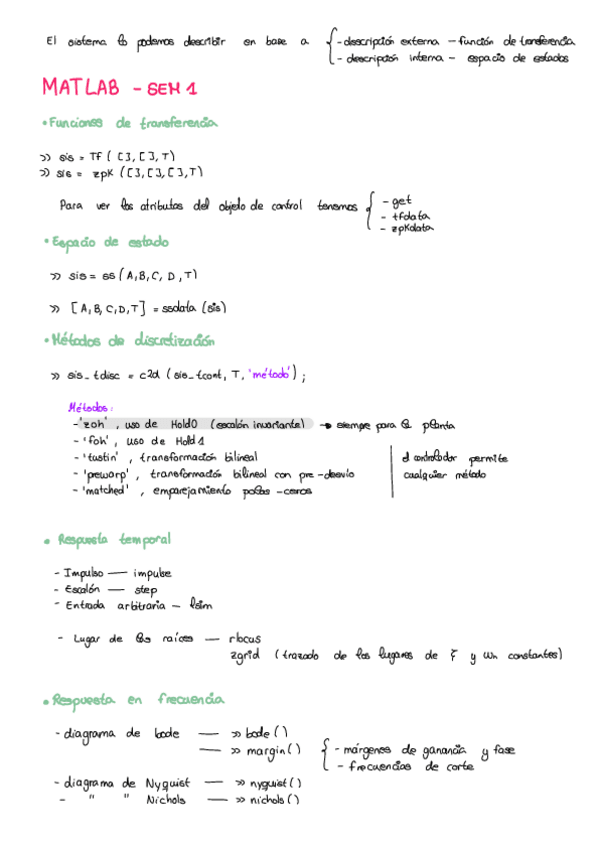 El sistema lo podemos describir en base a { - descripción externa - función de transferencia
- descripción interna - espacio de estados
MATLAB - SEM 1
• Funciones de transferencia
>> sis = TF ( [ ], [ ], T)
>> sis = zpk ([ ], [ ], [ ], T)
Para ver los atributos del objeto de control tenemos { - get
- tfdata
- zpkdata
• Espacio de estado
>> sis = ss (A,B,C, D ,T)
>> [A,B,C,D,T] = ssdata (sis)
• Métodos de discretización
>> sis_tdisc = c2d (sis_tcont, T, 'método') ;
Métodos:
- 'zoh' , uso de Hold0 (escalón invariante) → siempre para la planta
- 'foh' , uso de Hold1
- 'tustin' , transformación bilineal
- 'prewarp' , transformación bilineal con pre-desvío
- 'matched' , emparejamiento polos-ceros
el controlador permite
cualquier método
• Respuesta temporal
- Impulso — impulse
- Escalón — step
- Entrada arbitraria - lsim
- Lugar de las raíces — rlocus
zgrid (trazado de los lugares de ξ y wn constantes)
• Respuesta en frecuencia
- diagrama de bode — >> bode ()
— >> margin () { - márgenes de ganancia y fase
- frecuencias de corte
- diagrama de Nyquist — >> nyquist ()
- " " Nichols — >> nichols ()